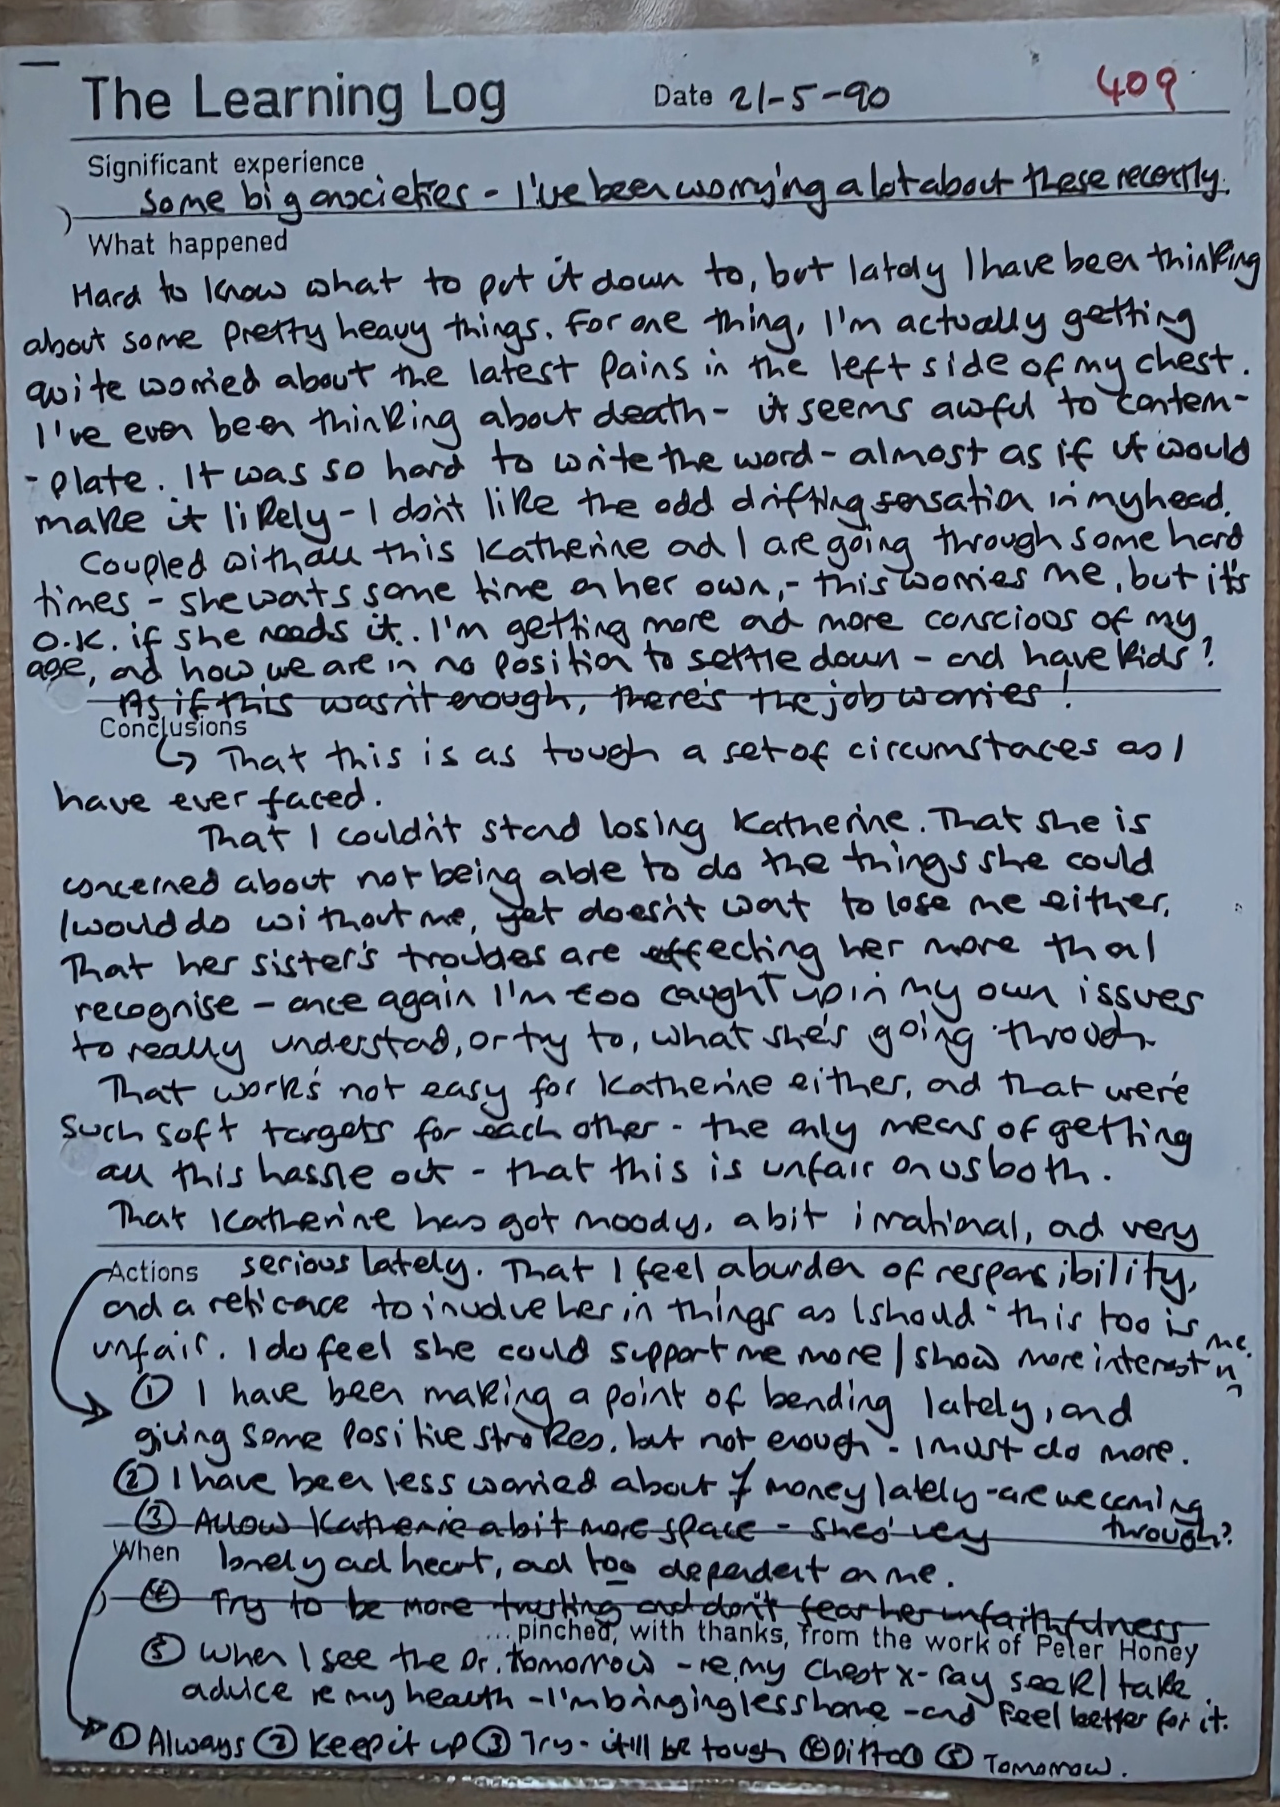 The Learning Log Date 21-5-90 409
Significant experience
Some big anxieties - I've been worrying a lot about these recently.
What happened
Hard to know what to put it down to, but lately I have been thinking
about some pretty heavy things. For one thing, I'm actually getting
quite worried about the latest pains in the left side of my chest.
I've even been thinking about death - it seems awful to contem-
-plate. It was so hard to write the word - almost as if it would
make it likely - I don't like the odd drifting sensation in my head.
Coupled with all this Katherine ad I are going through some hard
times - she wats some time on her own, - this worries me, but it's
O.K. if she needs it. I'm getting more ad more conscious of my
age, and how we are in no position to settle down - and have kids?
As if this wasn't enough, there's the job worries!
Conclusions
↳ That this is as tough a set of circumstaces as I
have ever faced.
That I couldn't stand losing Katherine. That she is
concerned about not being able to do the things she could
/would do without me, yet doesn't wat to lose me either.
That her sister's troubles are effecting her more tha I
recognise - once again I'm too caught up in my own issues
to really understad, or try to, what she's going through.
That work's not easy for Katherine either, ad that we're
such soft targets for each other - the only means of getting
all this hassle out - that this is unfair on us both.
That Katherine has got moody, a bit irrational, ad very
Actions serious lately. That I feel a burden of responsibility,
and a reticace to involve her in things as I should - this too is
unfair. I do feel she could support me more / show more interest in me.
① I have been making a point of bending lately, and
giving some positive strokes, but not enough - I must do more.
② I have been less worried about money lately - are we coming
through?
③ Allow Katherine a bit more space - she's very
When lonely ad heart, ad too dependent on me.
④ Try to be more trusting and don't fear her unfaithfulness
...pinched, with thanks, from the work of Peter Honey
⑤ When I see the Dr. tomorrow - re my chest x-ray seek / take
advice re my health - I'm bringing less home - and feel better for it.
① Always ② Keep it up ③ Try - it'll be tough ④ Ditto ⑤ Tomorrow.